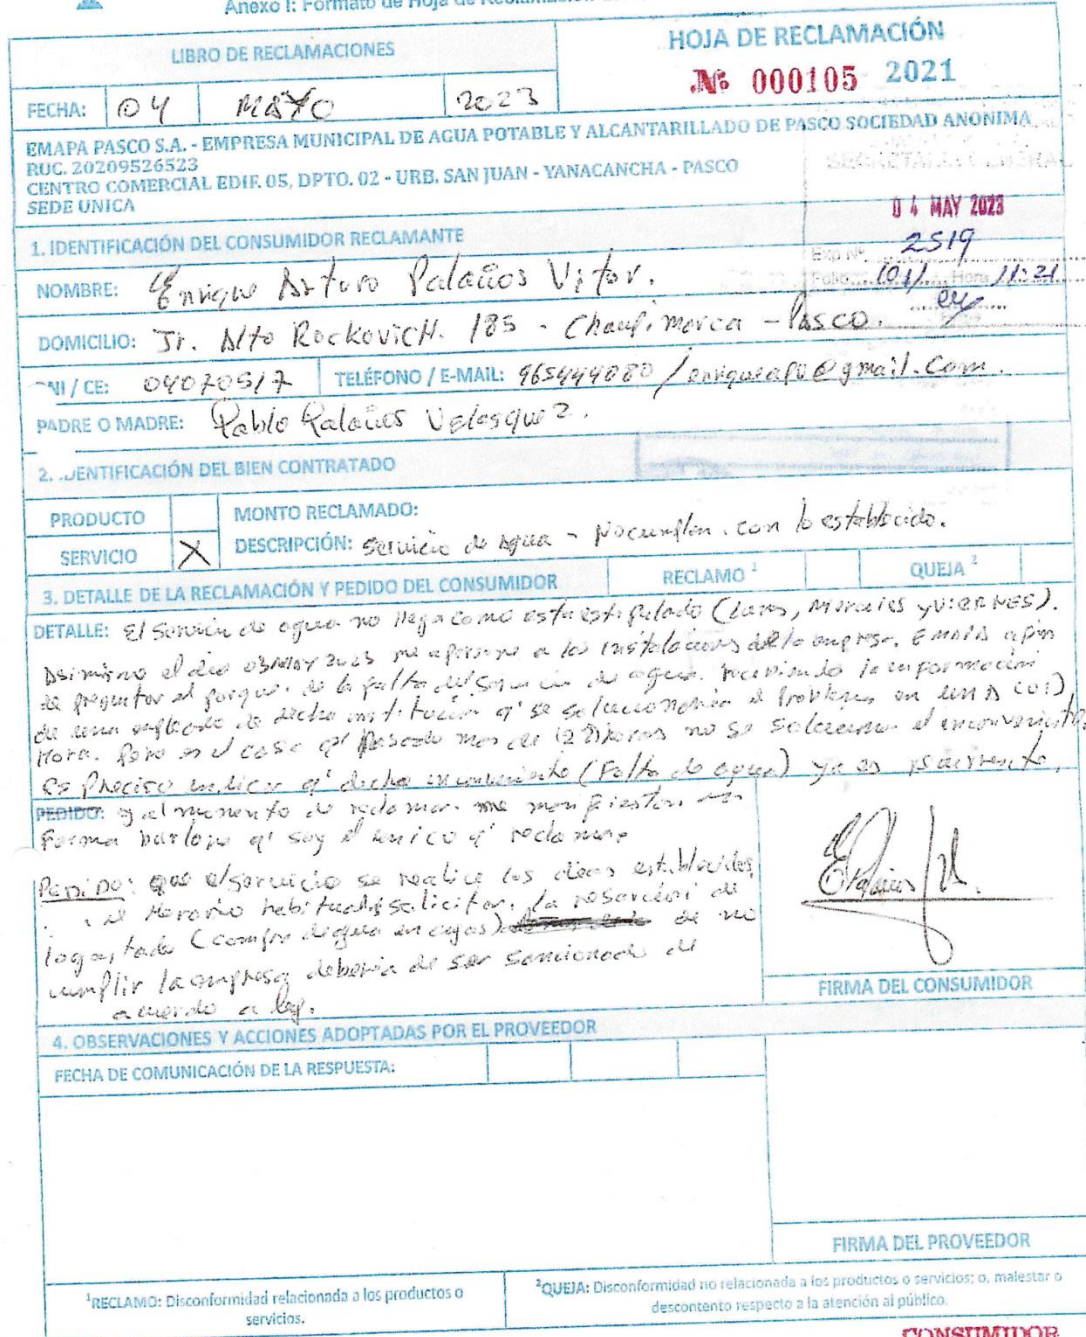 Anexo I: Formato de Hoja de Reclamación
LIBRO DE RECLAMACIONES
HOJA DE RECLAMACIÓN
Nº 000105 2021
FECHA: 04 MAYO 2023
EMAPA PASCO S.A. - EMPRESA MUNICIPAL DE AGUA POTABLE Y ALCANTARILLADO DE PASCO SOCIEDAD ANONIMA
RUC. 20209526523
CENTRO COMERCIAL EDIF. 05, DPTO. 02 - URB. SAN JUAN - YANACANCHA - PASCO
SEDE UNICA
SECRETARIA GENERAL
04 MAY 2023
Exp Nº 2519
Folio 101 Hora 11:21
1. IDENTIFICACIÓN DEL CONSUMIDOR RECLAMANTE
NOMBRE: Enrique Arturo Palacios Vitor.
DOMICILIO: Jr. Alto Rockovich. 185 - Chaupimarca - Pasco.
NI / CE: 04070517 TELÉFONO / E-MAIL: 965444080 / enriqueapv@gmail.com.
PADRE O MADRE: Pablo Palacios Velasquez.
2. IDENTIFICACIÓN DEL BIEN CONTRATADO
PRODUCTO MONTO RECLAMADO:
SERVICIO X DESCRIPCIÓN: Servicio de Agua - No cumplen con lo establecido.
3. DETALLE DE LA RECLAMACIÓN Y PEDIDO DEL CONSUMIDOR RECLAMO ¹ QUEJA ²
DETALLE: El Servicio de agua no llega como esta estipulado (Lunes, Miercoles y Viernes).
Asimismo el dia 03 MAY 2023 me apersone a las instalaciones de la empresa. EMAPA a fin
de preguntar el porque. de la falta del servicio de agua. recibiendo la información
de una empleada de dicha institución q' se solucionaria el problema en UNA (01)
Hora. Pero es el caso q' pasado mas de horas no se soluciona el inconveniente
Es Preciso indicar q' dicho inconveniente (Falta de agua) ya es
PEDIDO: y al momento de reclamar me manifiestan
Forma burlona q' soy el unico q' reclama
Pedido: que el servicio se realice los dias establecidos
el Horario habitual, solicitar. la de
lo gastado (compra de agua en cajas) de no
cumplir la empresa deberia de ser sancionado de
acuerdo a ley.
FIRMA DEL CONSUMIDOR
4. OBSERVACIONES Y ACCIONES ADOPTADAS POR EL PROVEEDOR
FECHA DE COMUNICACIÓN DE LA RESPUESTA:
FIRMA DEL PROVEEDOR
¹RECLAMO: Disconformidad relacionada a los productos o
servicios.
²QUEJA: Disconformidad no relacionada a los productos o servicios; o, malestar o
descontento respecto a la atención al público.
CONSUMIDOR